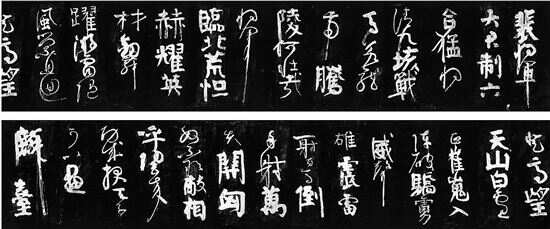 裴將軍
大君制六
合猛將
清九垓戰
馬若龍
虎騰
陵何壯哉
將軍
臨北荒恒
赫耀英
材劍舞
躍游雷隨
風縈且迴
登高望
登高望
天山白雲
正崔嵬入
陣破驕虜
威聲
雄震雷
射百馬倒
再射萬
夫開匈
奴不敢敵相
呼歸去來
功成報天子
可以畫
麟臺